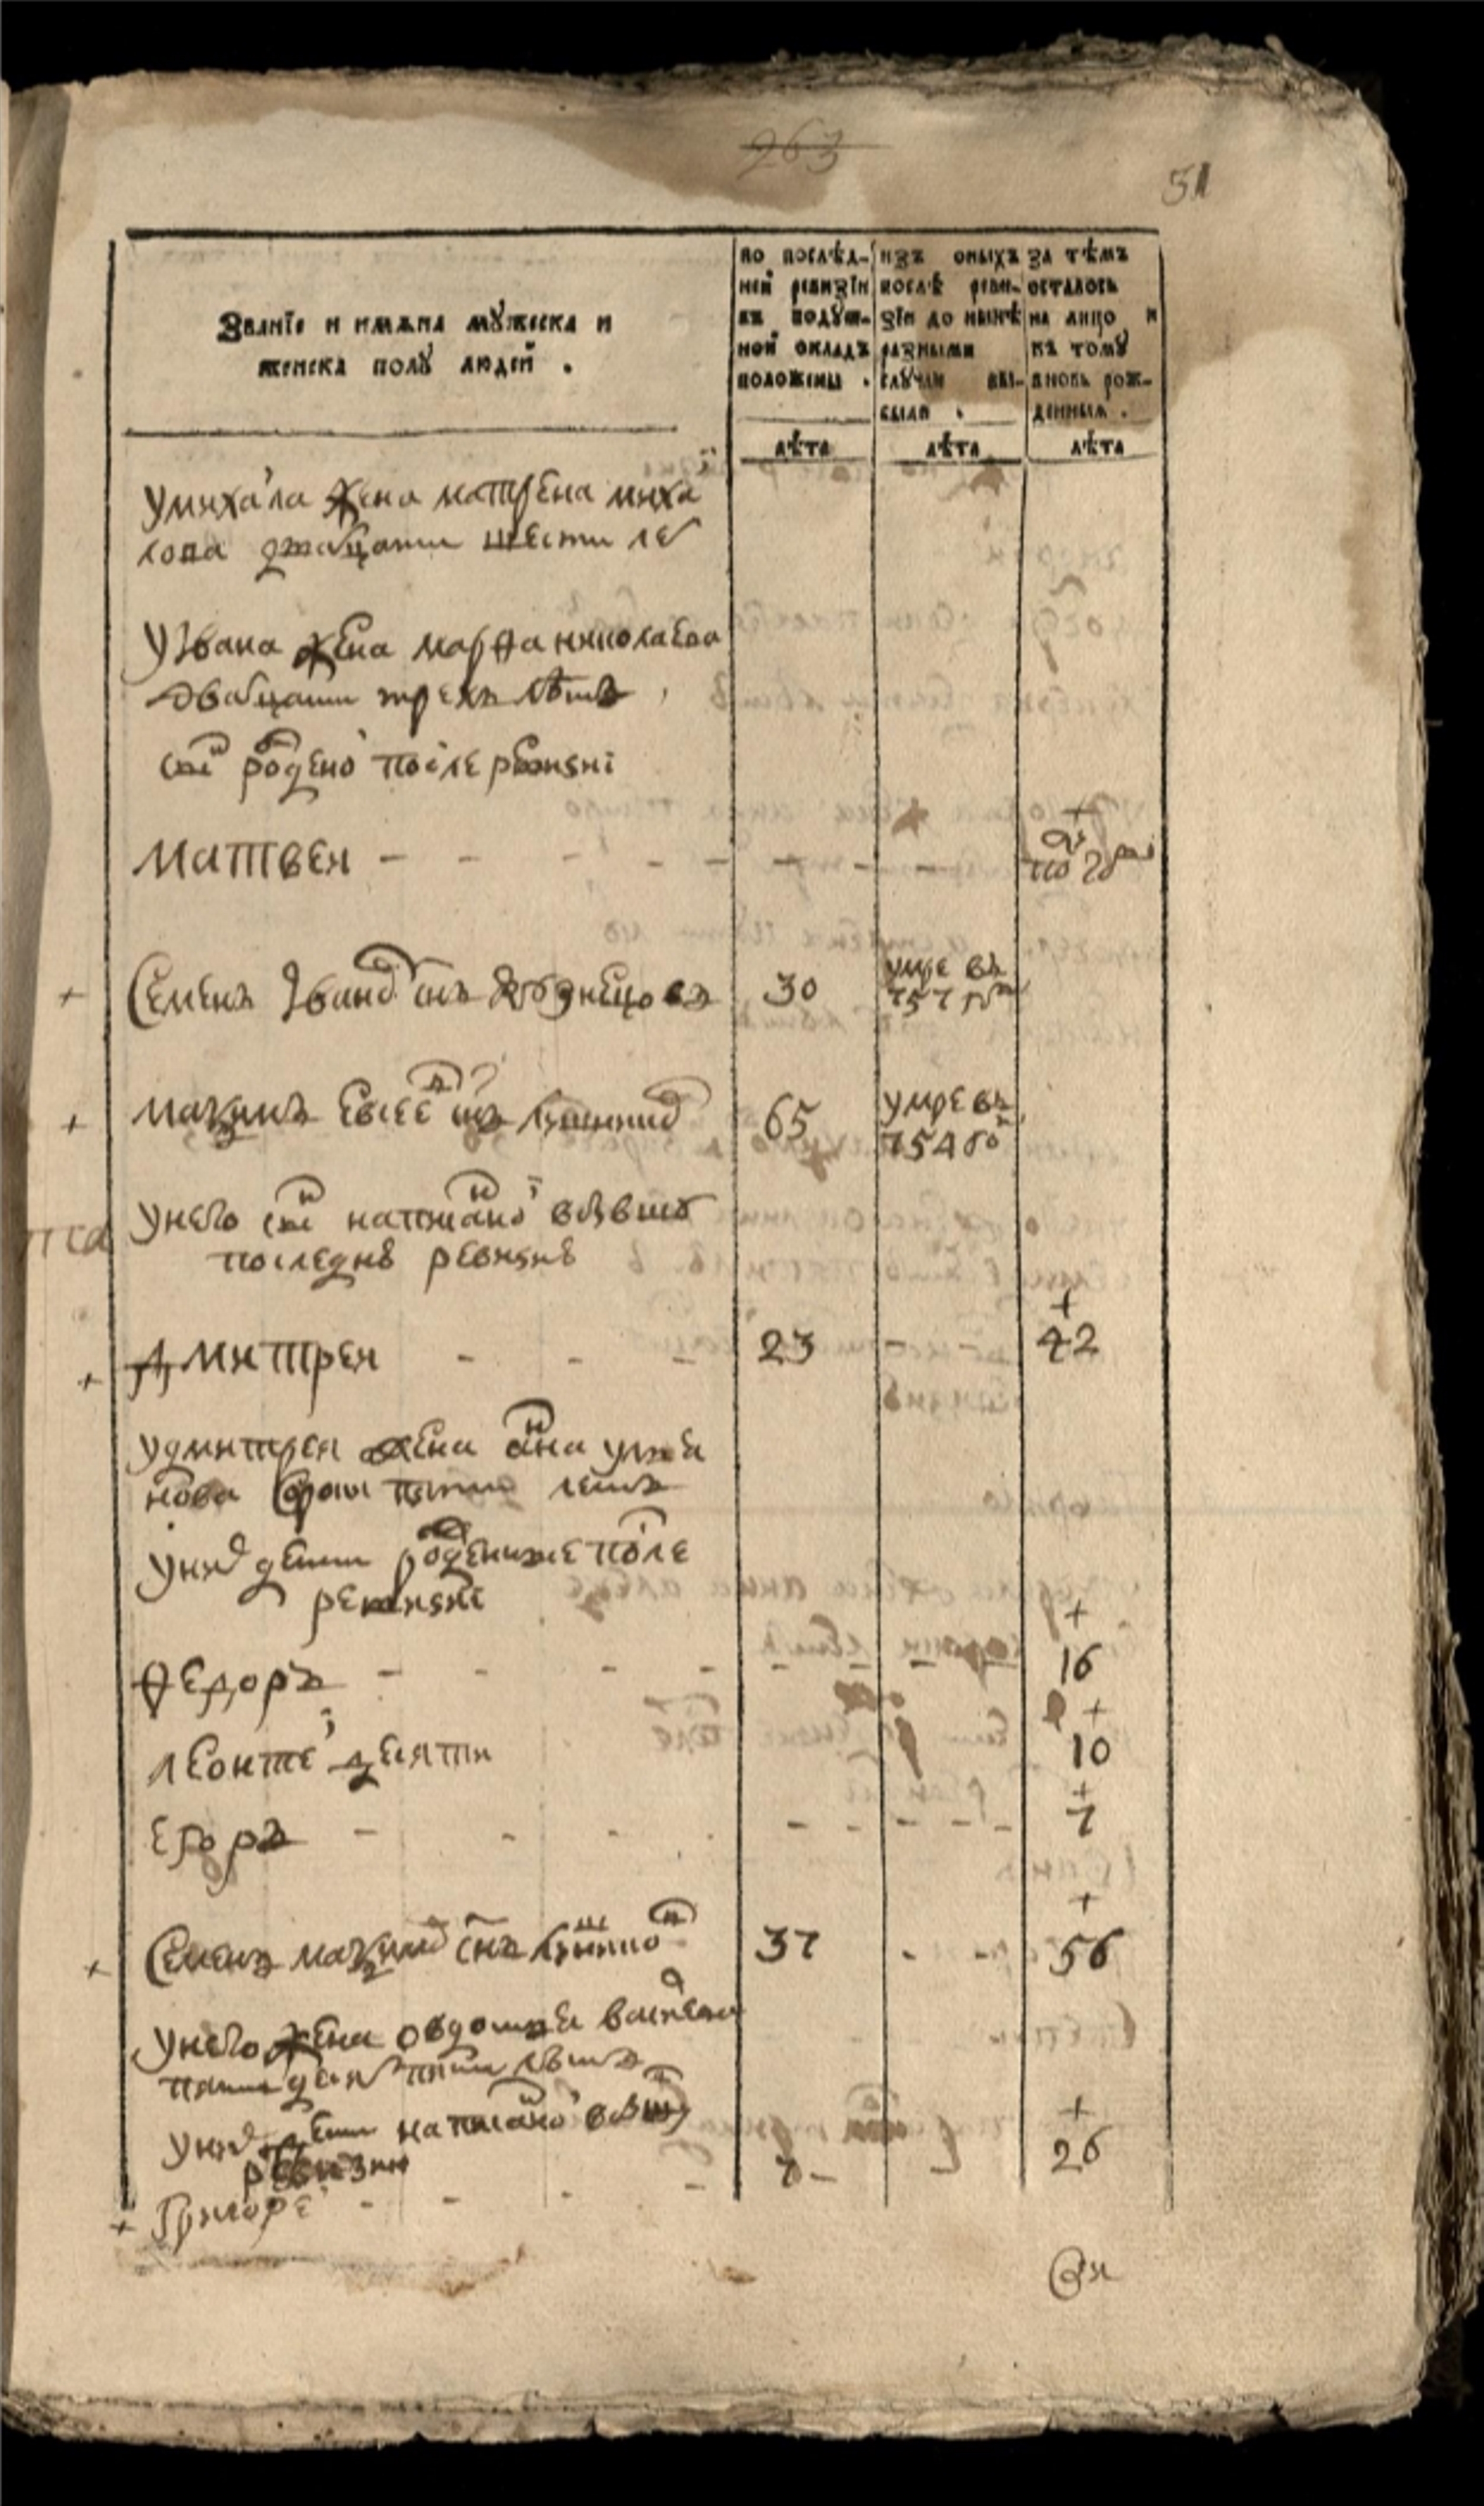 263
51
Званїе и имѧна мꙋжеска и
женска полꙋ людей .
по послѣд-
ней ревизїи
въ подуш-
ной окладъ
положены .
изъ оныхъ
послѣ реви-
зїи до нынѣ
разными
слꙋчаи вы-
были .
за тѣмъ
осталось
на лицо и
къ томꙋ
вновь рож-
денныя .
лѣта
лѣта
лѣта
у михаила жена матрена михаи
лова дватцати шести ле
у Ивана жена марѳа николаева
дватцати трехъ лѣтъ
сн҃ъ рожденой после ревизиї
матвей
по году
Семенъ Ивановъ сн҃ъ 30
умре въ
757 году
мазимъ Евсеевъ сн҃ъ 65
умре въ
754 го
у него сн҃ъ написаной в бывшую
последнѣю ревизию
дмитрей 23 42
у дмитрея жена анна
нова сорока пяти летъ
у них дети рожденные после
ревизиї
Ѳедоръ 16
леонтей десяти 10
Егоръ 7
Семенъ сн҃ъ 37 56
у него жена овдотья василева
пятидесят пяти лѣтъ
у них дети написаной в бывшую
ревизии
Григорей 7 26